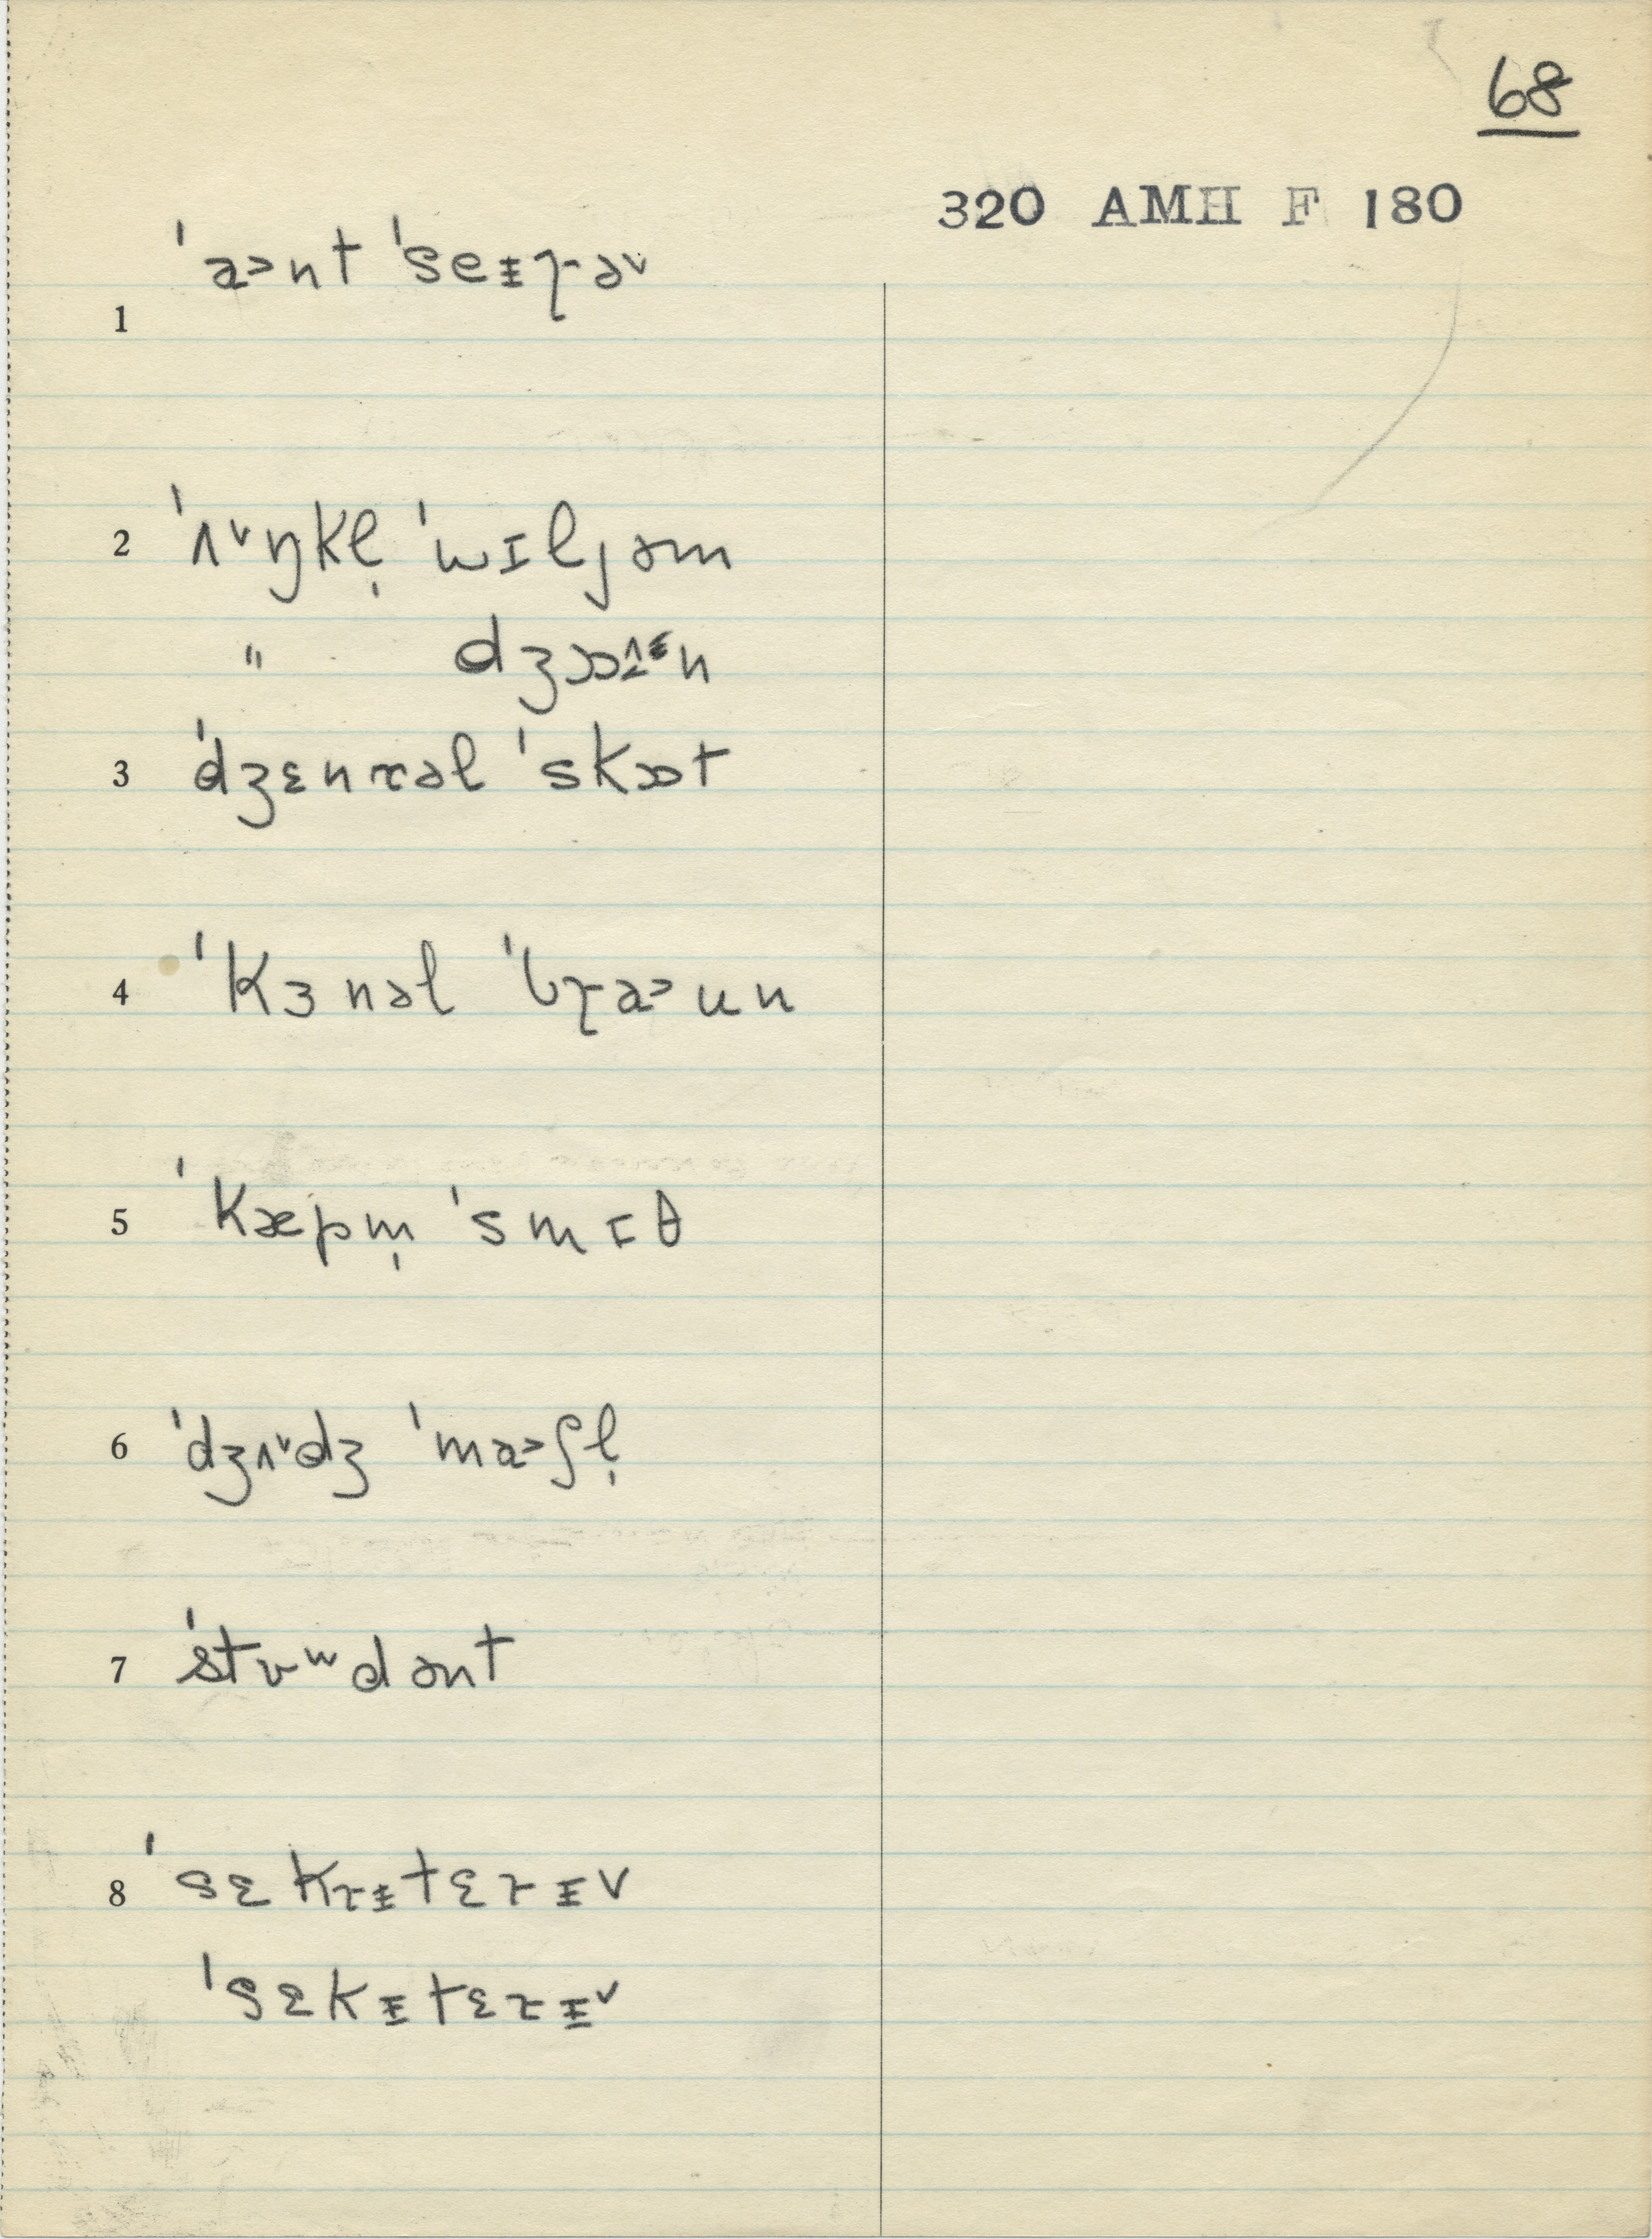 68
320 AMH F 180
1 ˈa˃nt ˈseᵻɽə˅
2 ˈʌ˅ŋkl̩ ˈwɪljəm
" dʒɒn
3 ˈdʒɛnrəl ˈskɒt
4 ˈkɜnəl ˈbɽa˃un
5 ˈkæpm̩ ˈsmɪθ
6 ˈdʒʌ˅dʒ ˈma˃ʃl̩
7 ˈstʊʷdənt
8 ˈsɛkrᵻtɛrᵻ˅
ˈsɛkᵻtɛrᵻ˅